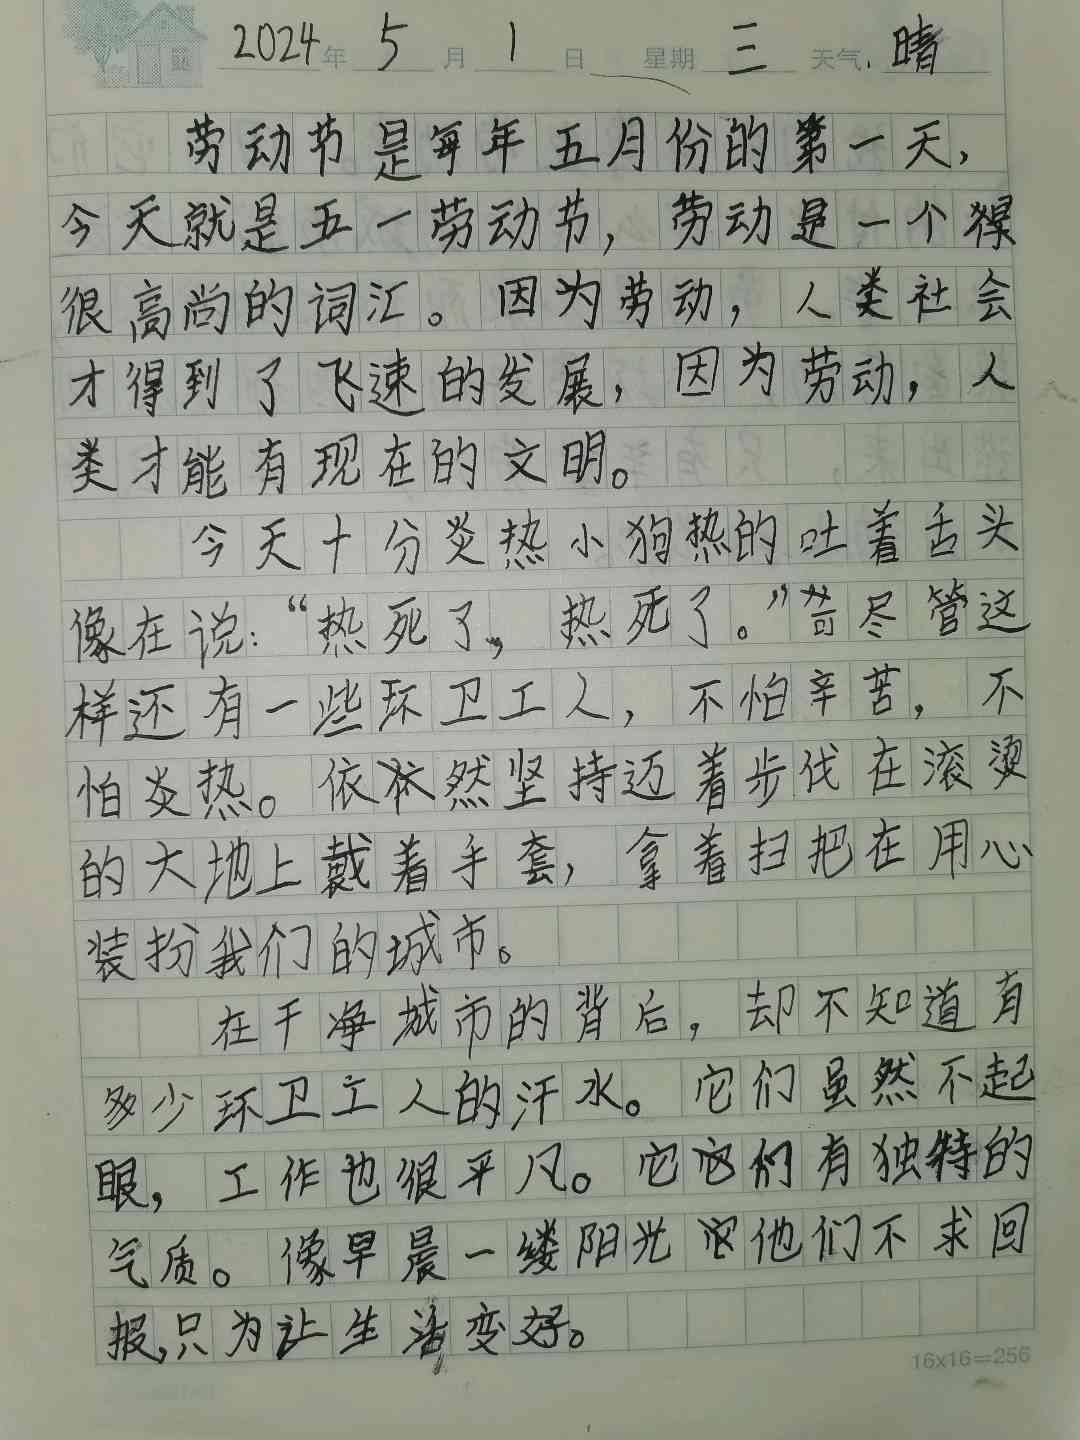 2024年 5月 1日 星期三 天气 晴
劳动节是每年五月份的第一天，
今天就是五一劳动节，劳动是一个
很高尚的词汇。因为劳动，人类社会
才得到了飞速的发展，因为劳动，人
类才能有现在的文明。
今天十分炎热小狗热的吐着舌头
像在说：“热死了，热死了。”尽管这
样还有一些环卫工人，不怕辛苦，不
怕炎热。依然坚持迈着步伐在滚烫
的大地上戴着手套，拿着扫把在用心
装扮我们的城市。
在干净城市的背后，却不知道有
多少环卫工人的汗水。它们虽然不起
眼，工作也很平凡。它它们有独特的
气质。像早晨一缕阳光他们不求回
报，只为让生活变好。
16x16=256